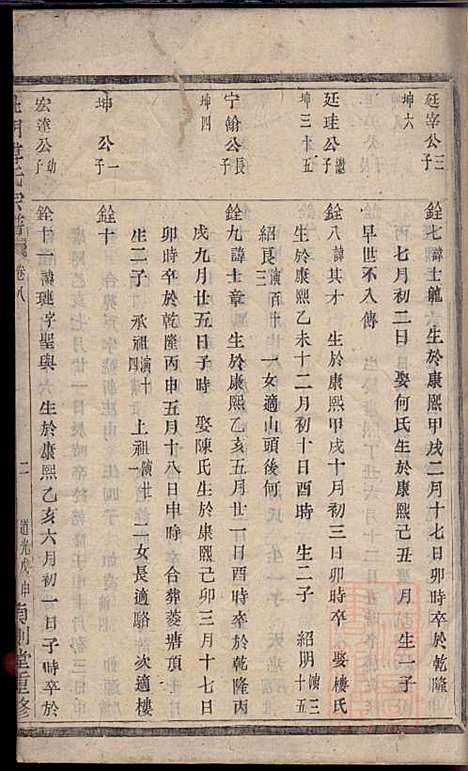 廷宰公三子
坤六
銓七諱士龍 生於康熙甲戌二月十七日卯時卒於乾隆
丙 七月初二日 娶何氏生於康熙己丑 月 生一子
早世不入傳
廷珪公繼子
坤三十五
銓八諱其才 生於康熙甲戌十月初三日卯時卒 娶樓氏
生於康熙乙未十二月初十日酉時 生二子 紹明演三十五
紹良演百三十 一女適山頭後何
宁翰公長子
坤四
銓九諱士章 生於康熙乙亥五月廿一日酉時卒於乾隆丙
戌九月廿五日子時 娶陳氏生於康熙己卯三月十七日
卯時卒於乾隆丙申五月十八日申時 合葬菱塘頂
生二子 承祖演四十 上祖演廿一 二女長適駱 次適樓
坤 公一子
銓十
宏達公幼子
銓十一諱璉字聖與 生於康熙乙亥六月初一日子時卒於
宗譜 卷八 二 道光戊申 堂重修